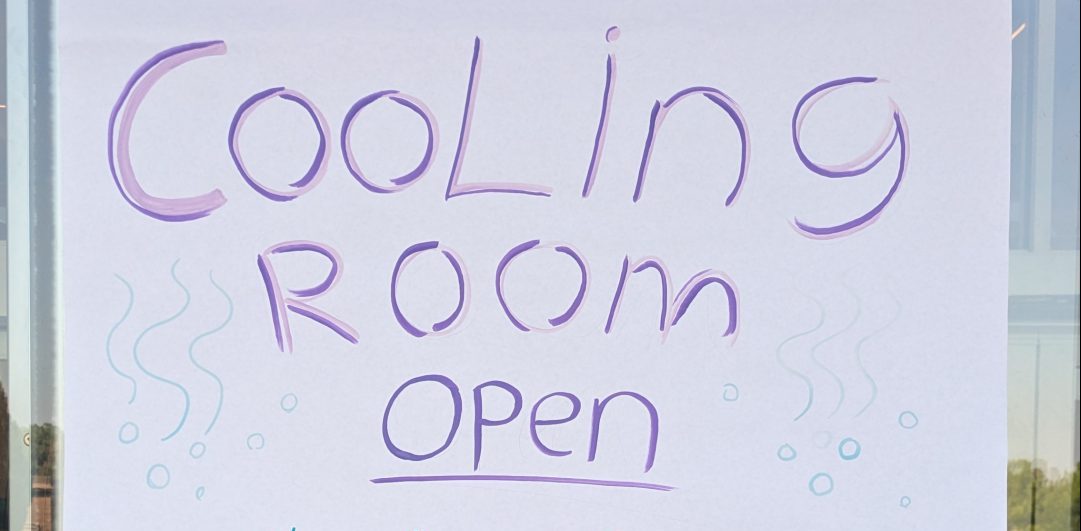 CooLing
Room
Open